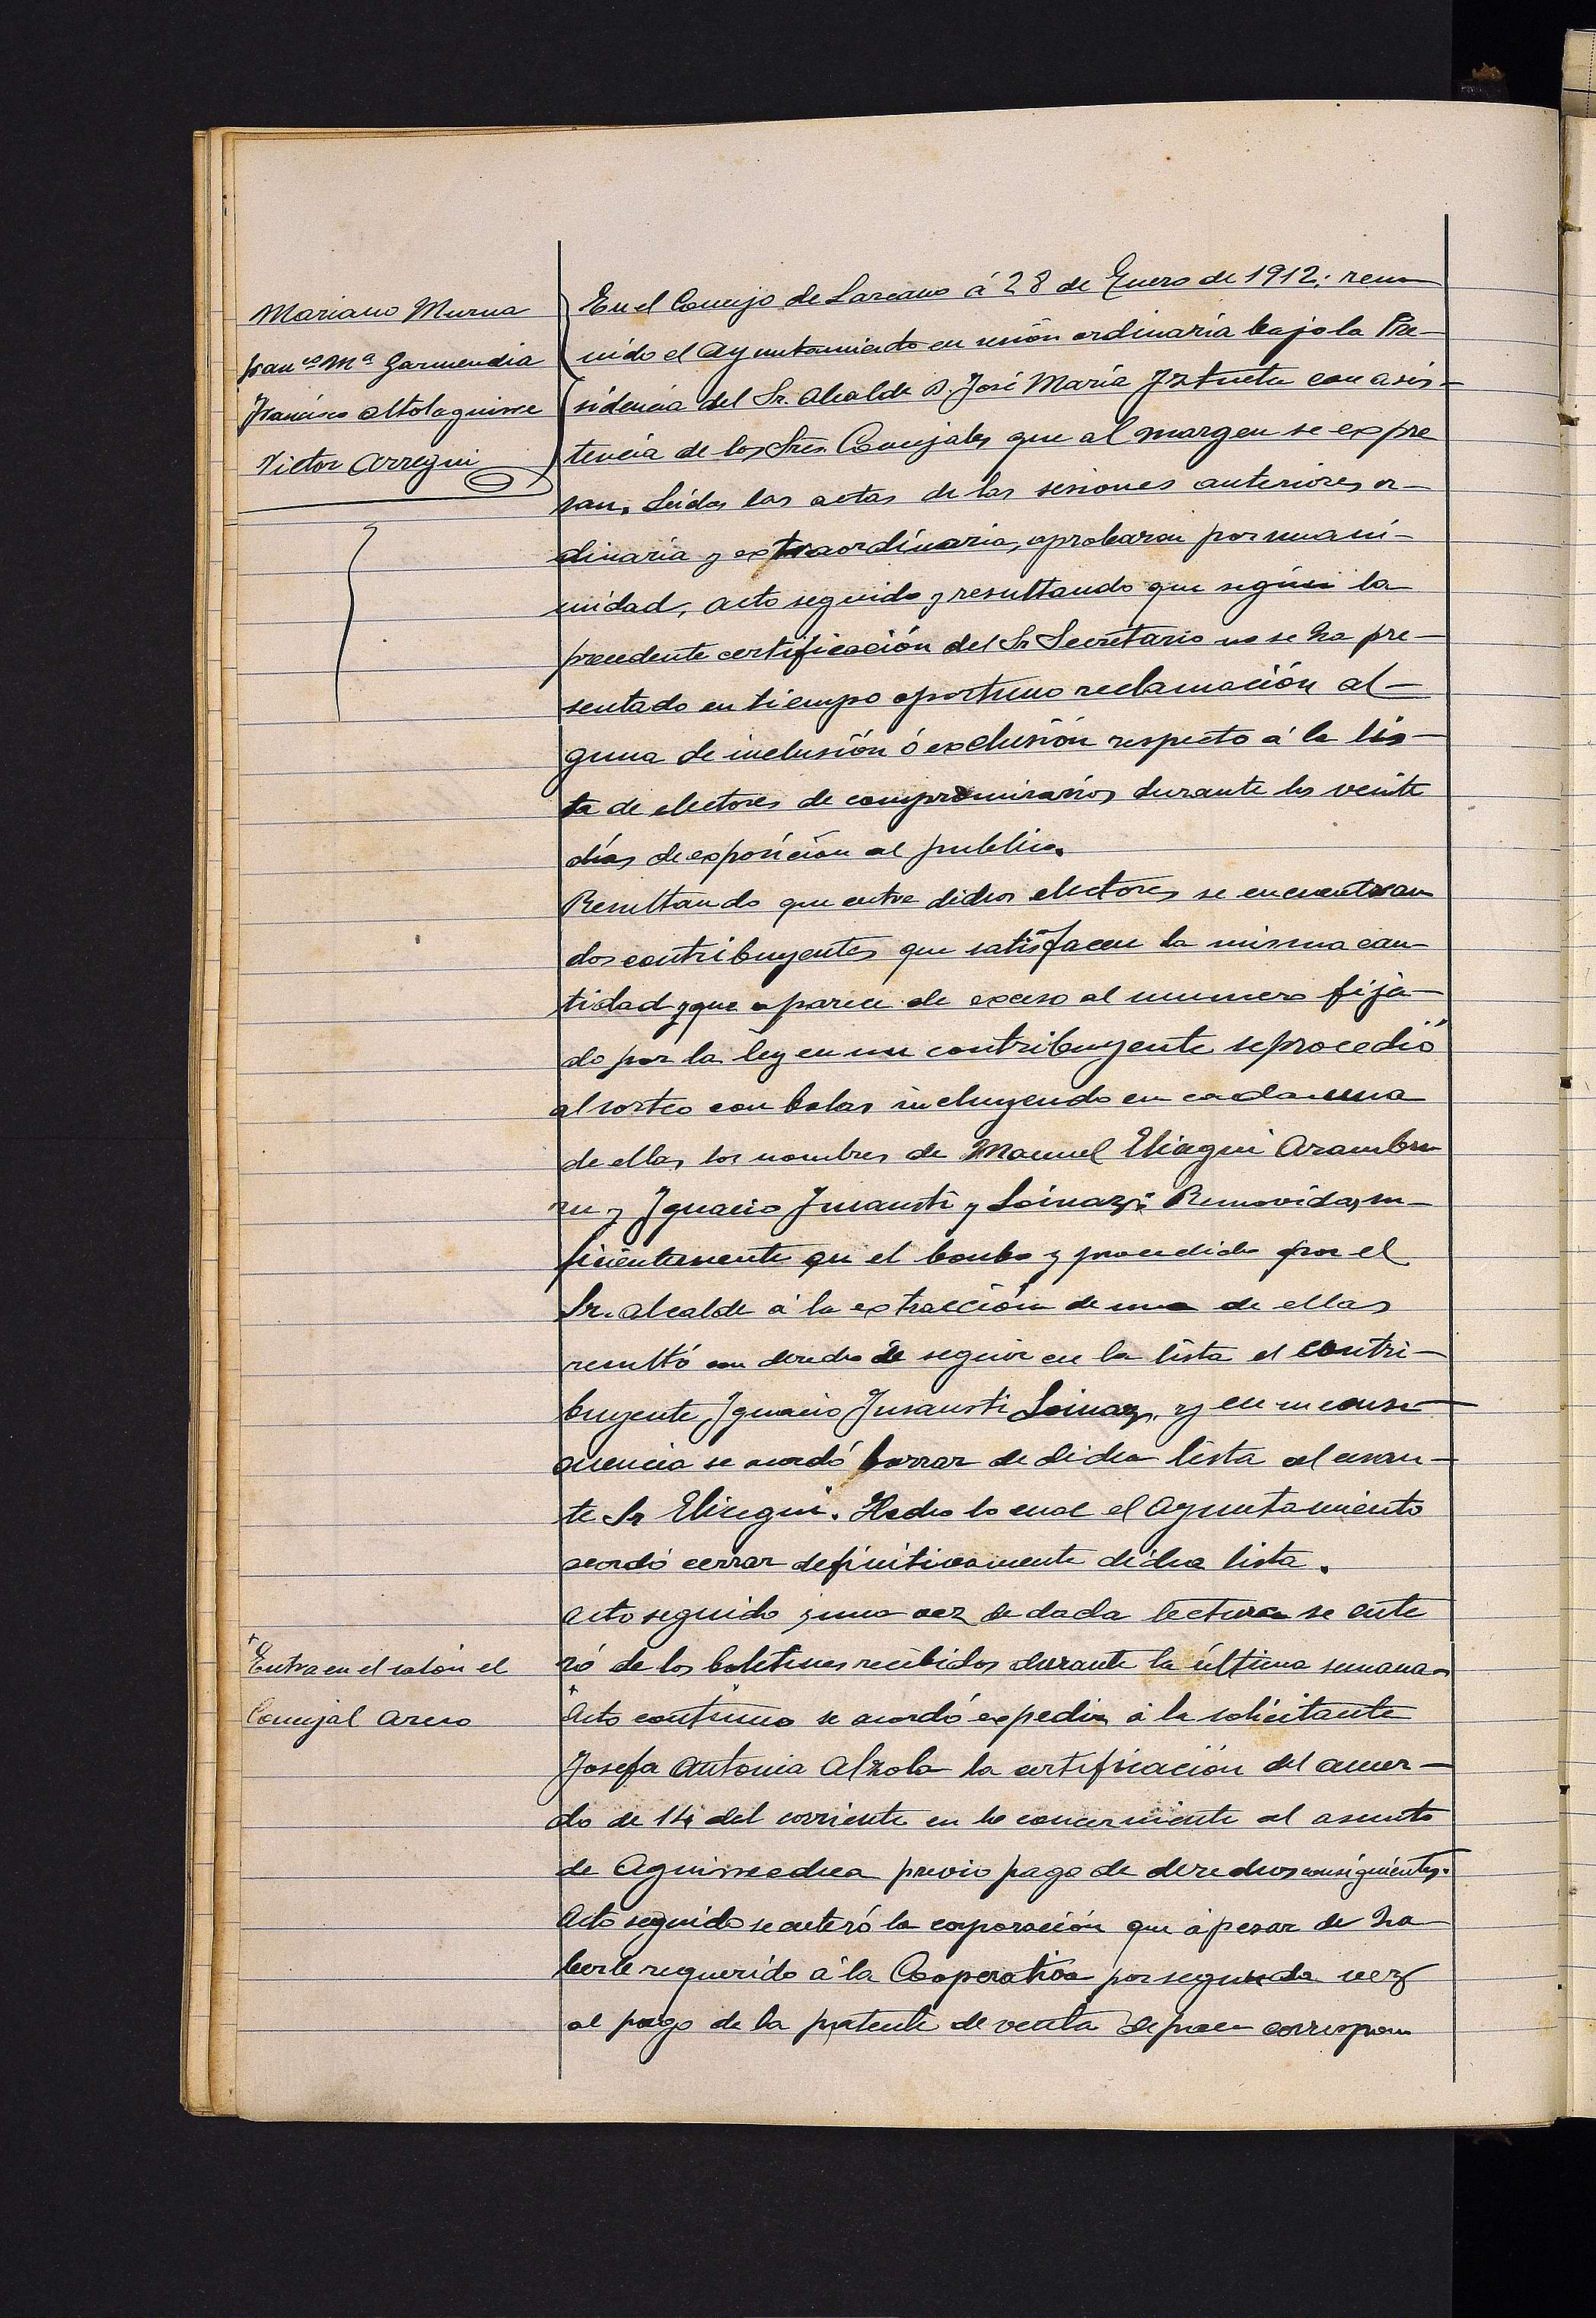 Mariano Murua
Franco Mª Garmendia
Francisco Altolaguirre
Victor Arregui
En el Concejo de Lazcano á 28 de Enero de 1912; reu
nido el Ayuntamiento en sesión ordinaria bajo la Pre-
sidencia del Sr. Alcalde D. José María Iztueta con asis-
tencia de los Sres. Concejales que al margen se expre
san. Leidas las actas de las sesiones anteriores or-
dinaria y extraordinaria, aprobaron por unani-
midad, acto seguido y resultando que según la
precedente certificación del Sr Secretario no se ha pre-
sentado en tiempo oportuno reclamación al-
guna de inclusión ó exclusión respecto á la lis-
ta de electores de compromisarios durante los veinte
días de exposición al publico.
Resultando que entre dichos electores se encuentran
dos contribuyentes que satisfacen la misma can
tidad y que aparece de exceso al numero fija-
do por la ley en un contribuyente se procedió
al sorteo con bolas incluyendo en cada una
de ellas los nombres de Manuel Elicegui Arambu
ru y Ignacio Insausti y Loinaz; Removidas su-
ficientemente en el bombo y procedido por el
Sr. Alcalde á la extracción de una de ellas
resultó con derecho de seguir en la lista el contri-
buyente Ignacio Insausti Loinaz, y en su conse
cuencia se acordó borrar de dicha lista al
te Sr Elicegui. Hecho lo cual el Ayuntamiento
acordó cerrar definitivamente dicha lista.
Acto seguido y una vez de dada lectura se ente
ró de los boletines recibidos durante la última semana
+ Entra en el salón el
Concejal Arcco
+ Acto continuo se acordó expedir á la solicitante
Josefa Antonia Alzola la certificación del acuer-
do de 14 del corriente en lo concerniente al asunto
de Aguirreechea previo pago de derechos consiguientes.
Acto seguido se enteró la corporación que ápesar de ha
berle requerido á la Cooperativa por segunda vez
al pago de la patente de venta correspon